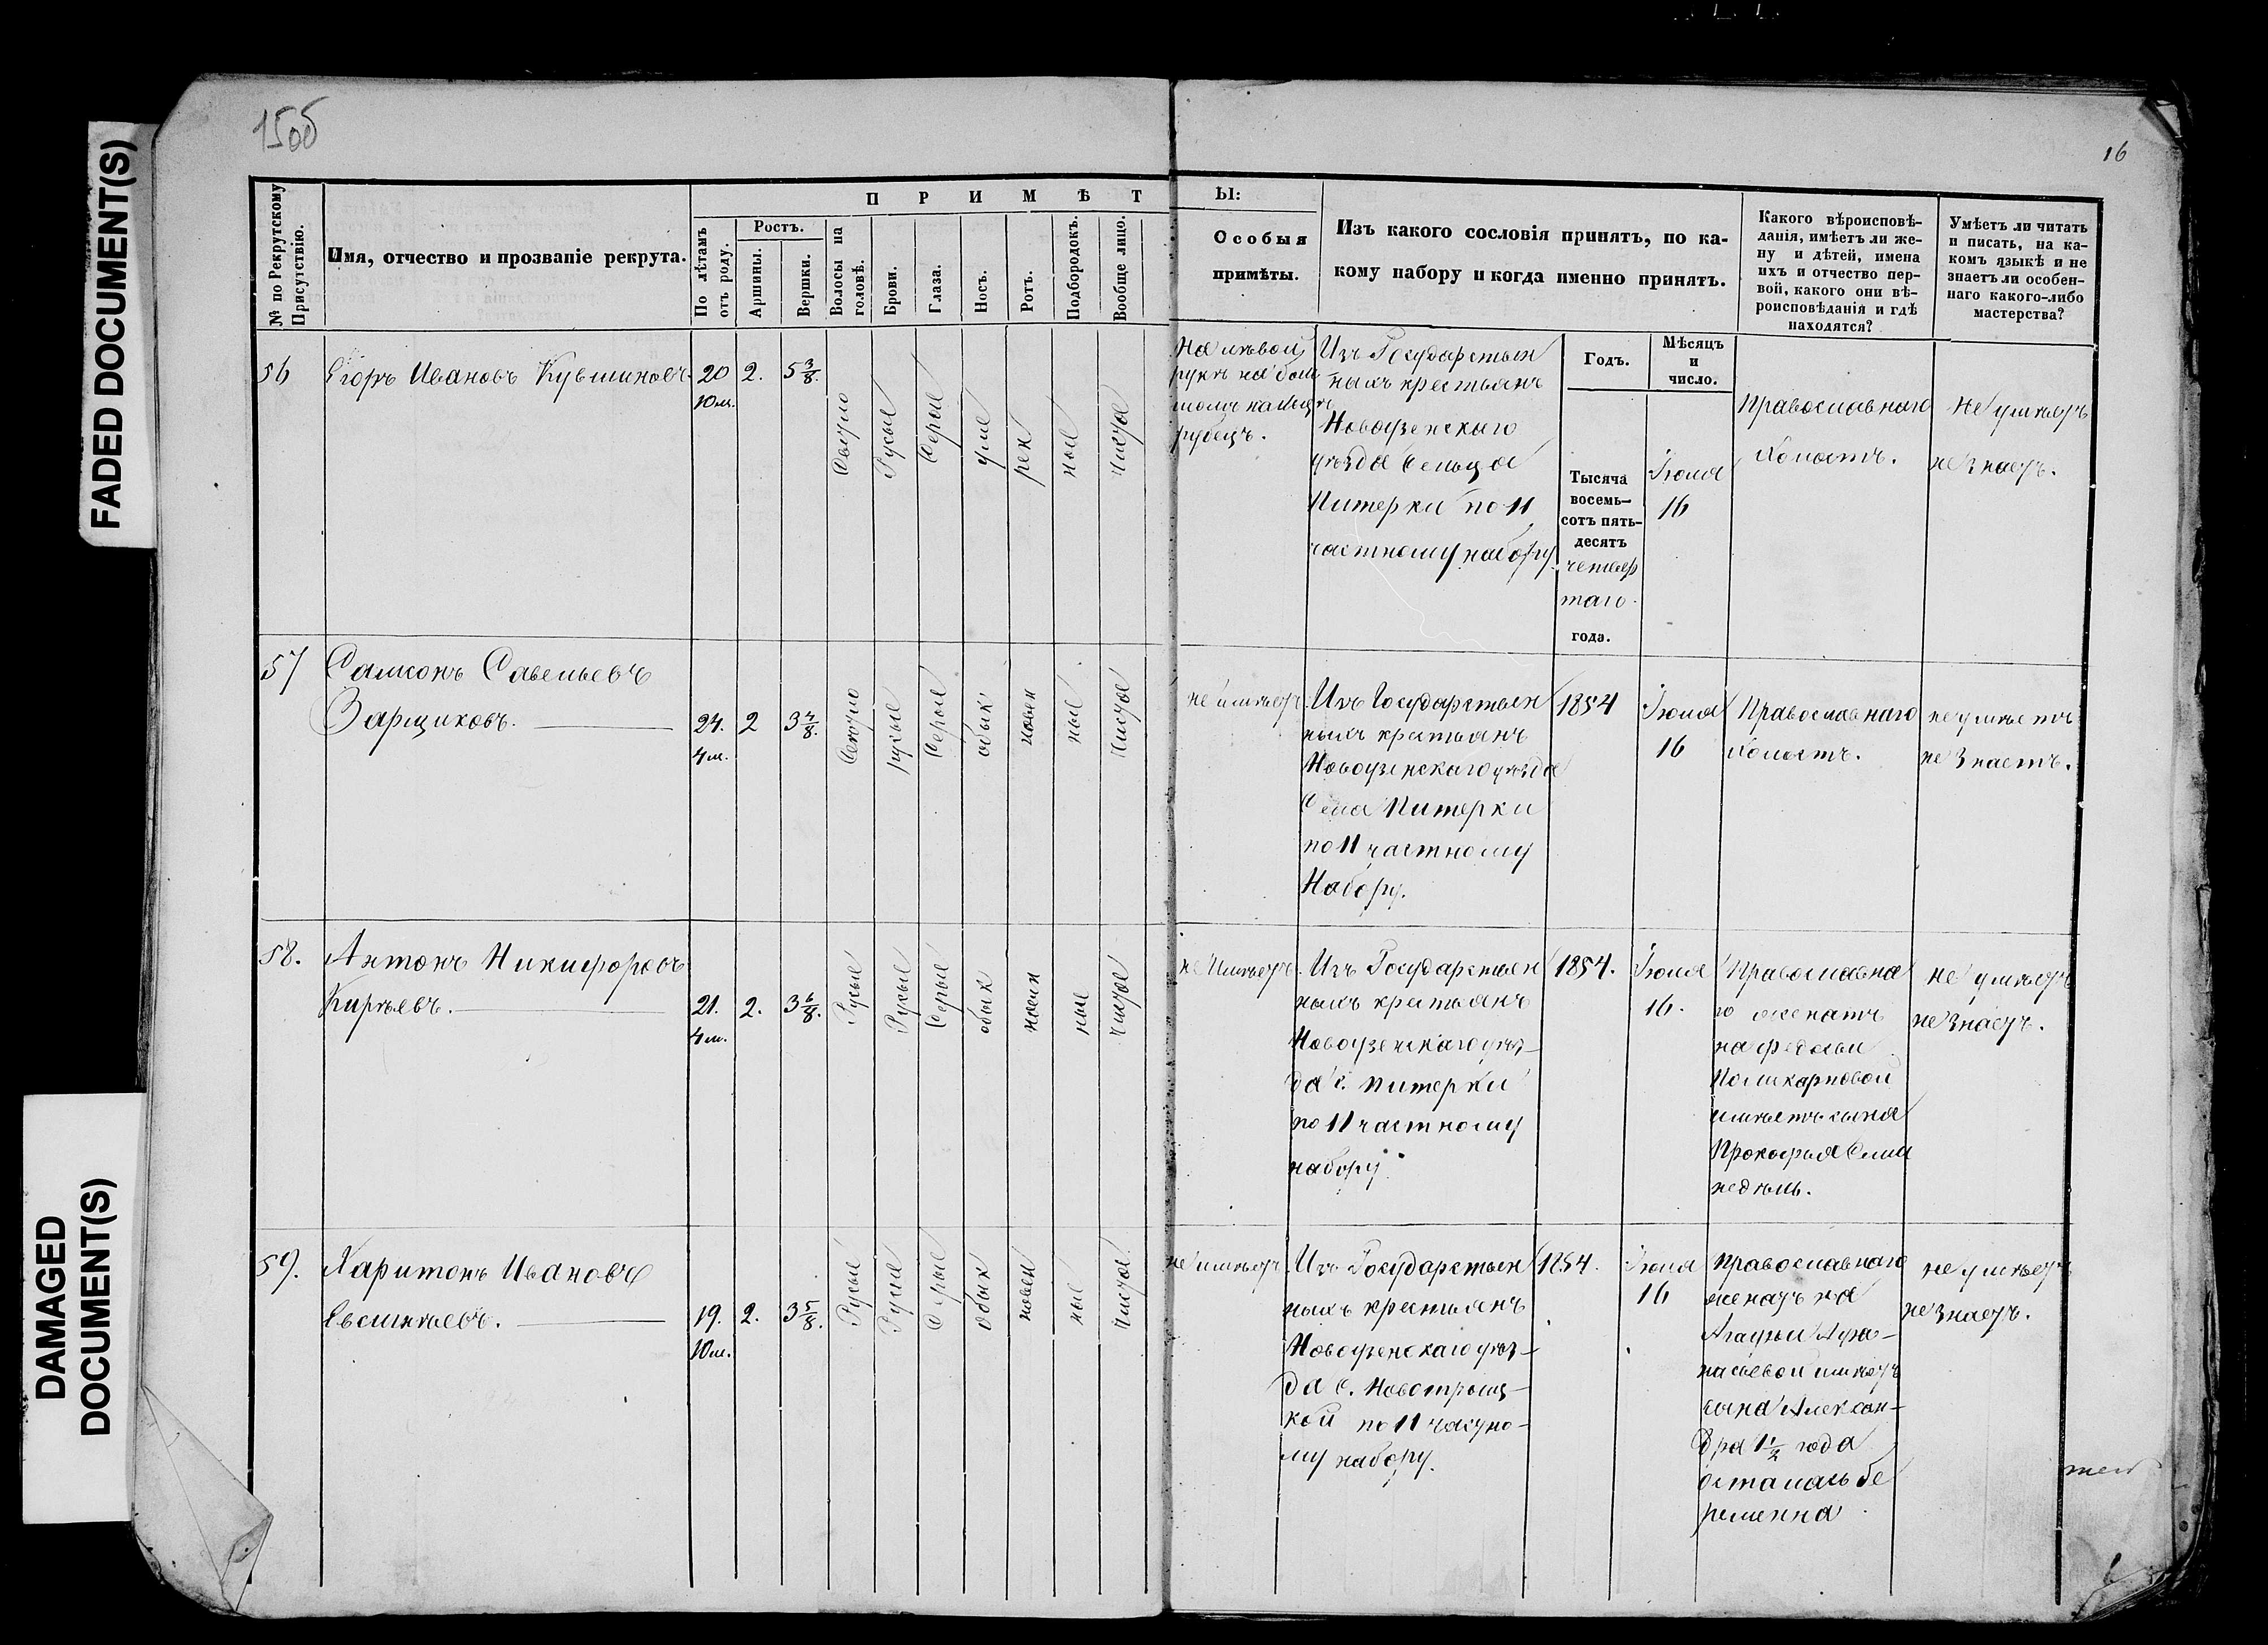 FADED DOCUMENT(S)
DAMAGED
DOCUMENT(S)
15об
16
№ по Рекрутскому
Присутствію.
Имя, отчество и прозваніе рекрута.
П Р И М Ѣ Т Ы:
По лѣтамъ
отъ роду.
Ростъ.
Аршины.
Вершки.
Волосы на
головѣ.
Брови.
Глаза.
Носъ.
Ротъ.
Подбородокъ.
Вообще лицо.
Особыя
примѣты.
Изъ какого сословія принятъ, по ка-
кому набору и когда именно принятъ.
Какого вѣроисповѣ-
данія, имѣетъ ли же-
ну и дѣтей, имена
ихъ и отчество пер-
вой, какого они вѣ-
роисповѣданія и гдѣ
находятся?
Умѣетъ ли читать
и писать, на ка-
комъ языкѣ и не
знаетъ ли особен-
наго какого-либо
мастерства?
Годъ.
Мѣсяцъ
и
число.
56
Егоръ Ивановъ Кувшиновъ
20
10 м.
2.
5 3/8.
Светло
Русые
Серые
уме
рен
ное
чистое
На левой
рукѣ на боль
шомъ пальцѣ
рубецъ.
Изъ Государствен
ныхъ крестьянъ
Новоузенскаго
уѣзда Сельца
Питерки по 11
частному набору.
Тысяча
восемь-
сотъ пять-
десятъ
четвер
таго
года.
Іюля
16
Православнаго
холостъ.
не умѣетъ
не знаетъ.
57
Самсонъ Савельевъ
Зарщиковъ.
24.
4 м.
2
3 4/8.
Светло
русые
Серые
обык
новен
ные
Чистое
не имѣетъ.
Изъ Государствен
ныхъ крестьянъ
Новоузенскаго уѣзда
Села Питерки
по 11 частному
Набору.
1854
Іюля
16
Православнаго
холостъ.
не умѣетъ
не знаетъ.
58.
Антонъ Никифоровъ
Кирѣевъ.
21.
4 м.
2.
3 6/8.
Русые
Русые
Серые
обык
новен
ные
чистое
не Имѣетъ.
Изъ Государствен
ныхъ крестьянъ
Новоузенскаго уѣз-
да с. Питерки
по 11 частному
набору
1854.
Іюля
16.
Православна
го женатъ
на Федосьи
Поликарповой
имѣетъ сына
Прокофья Семи
недѣль.
не умѣетъ
не знаетъ.
59.
Харитонъ Ивановъ
Евсигнѣевъ.
19.
10 м.
2.
3 5/8.
Русые
Русые
Серые
Обык
новен
ные
Чистое
не имѣетъ.
Изъ Государствен
ныхъ крестьянъ
Новоузенскаго уѣз-
да с. Новотроиц-
кой по 11 частно-
му набору.
1854.
Іюля
16
Православнаго
женатъ на
Агафьи Афа-
насьевой имѣетъ
сына Алексан-
дра 1 1/2 года
осталась бе
ременна
не умѣетъ
не знаетъ.